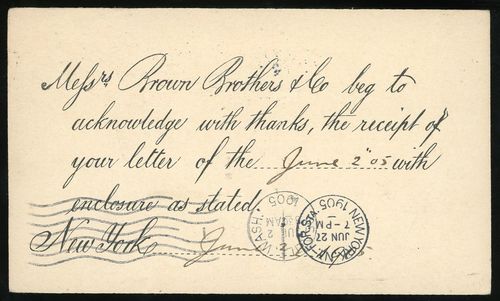 Messrs Brown Brothers & Co beg to
acknowledge with thanks, the receipt of
your letter of the June 2" 05 with
enclosure as stated.
New York June
WASH.
1905
NEW YORK, N.Y. FOR. STA.
JUN 27
7-PM
1905